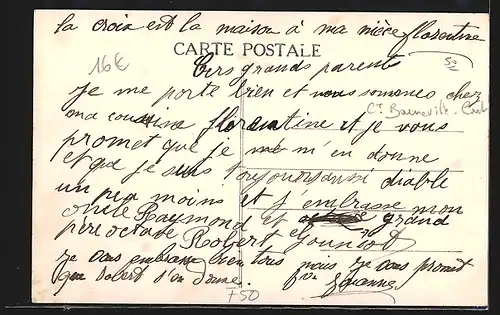 la croix est la maison à ma nièce florentine
CARTE POSTALE
16€
50
Cers grands parents
je me porte bien et nous sommes chez
ma cousine florentine et je vous
promet que je m'en donne
et que je suis toujours aussi diable
un peu moins et j'embrasse mon
oncle Raymond et grand
père octave Robert
je vous embrasse bien tous mais je vous promet
que Robert s'en donne.
F50